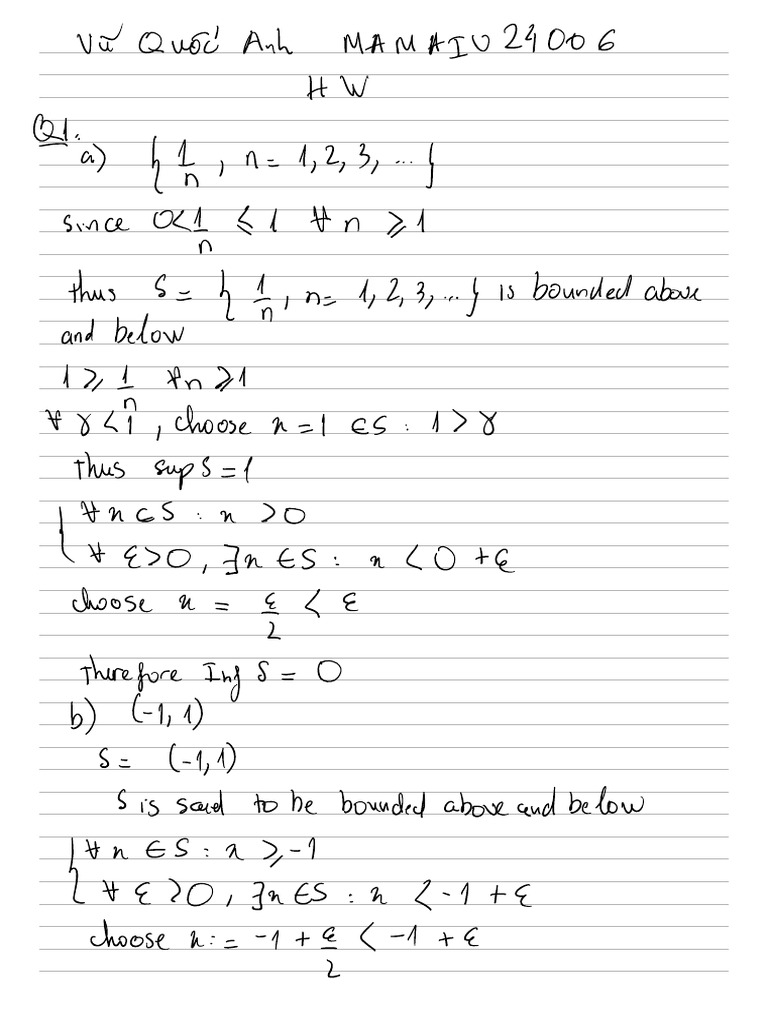 Vũ Quốc Anh MAMAIU24006
HW
Q1.
a) { 1/n , n = 1, 2, 3, ... }
since 0 < 1/n ≤ 1 ∀ n ≥ 1
thus S = { 1/n , n = 1, 2, 3, ... } is bounded above
and below
1 ≥ 1/n ∀n ≥ 1
∀ γ < 1 , choose x = 1 ∈ S : 1 > γ
Thus sup S = 1
{ ∀ x ∈ S : x > 0
∀ ε > 0 , ∃ x ∈ S : x < 0 + ε
choose x = ε/2 < ε
Therefore Inf S = 0
b) (-1, 1)
S = (-1, 1)
S is said to be bounded above and below
{ ∀ x ∈ S : x ≥ -1
∀ ε > 0 , ∃ x ∈ S : x < -1 + ε
choose x := -1 + ε/2 < -1 + ε